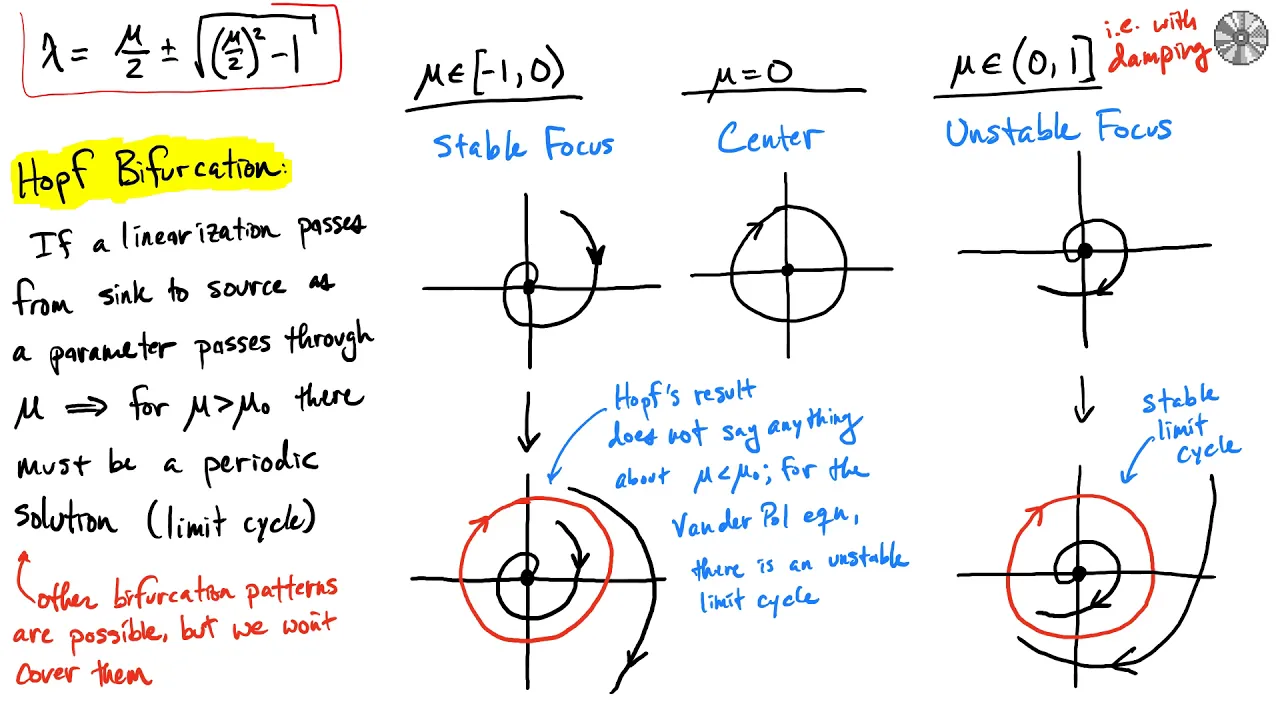 λ = μ/2 ± √((μ/2)² - 1)
Hopf Bifurcation:
If a linearization passes
from sink to source as
a parameter passes through
μ ⟹ for μ>μ₀ there
must be a periodic
solution (limit cycle)
other bifurcation patterns
are possible, but we won't
cover them
μ∈[-1,0)
Stable Focus
μ=0
Center
μ∈(0,1]
i.e. with
damping
Unstable Focus
Hopf's result
does not say anything
about μ<μ₀; for the
Van der Pol eqn,
there is an unstable
limit cycle
stable
limit
cycle